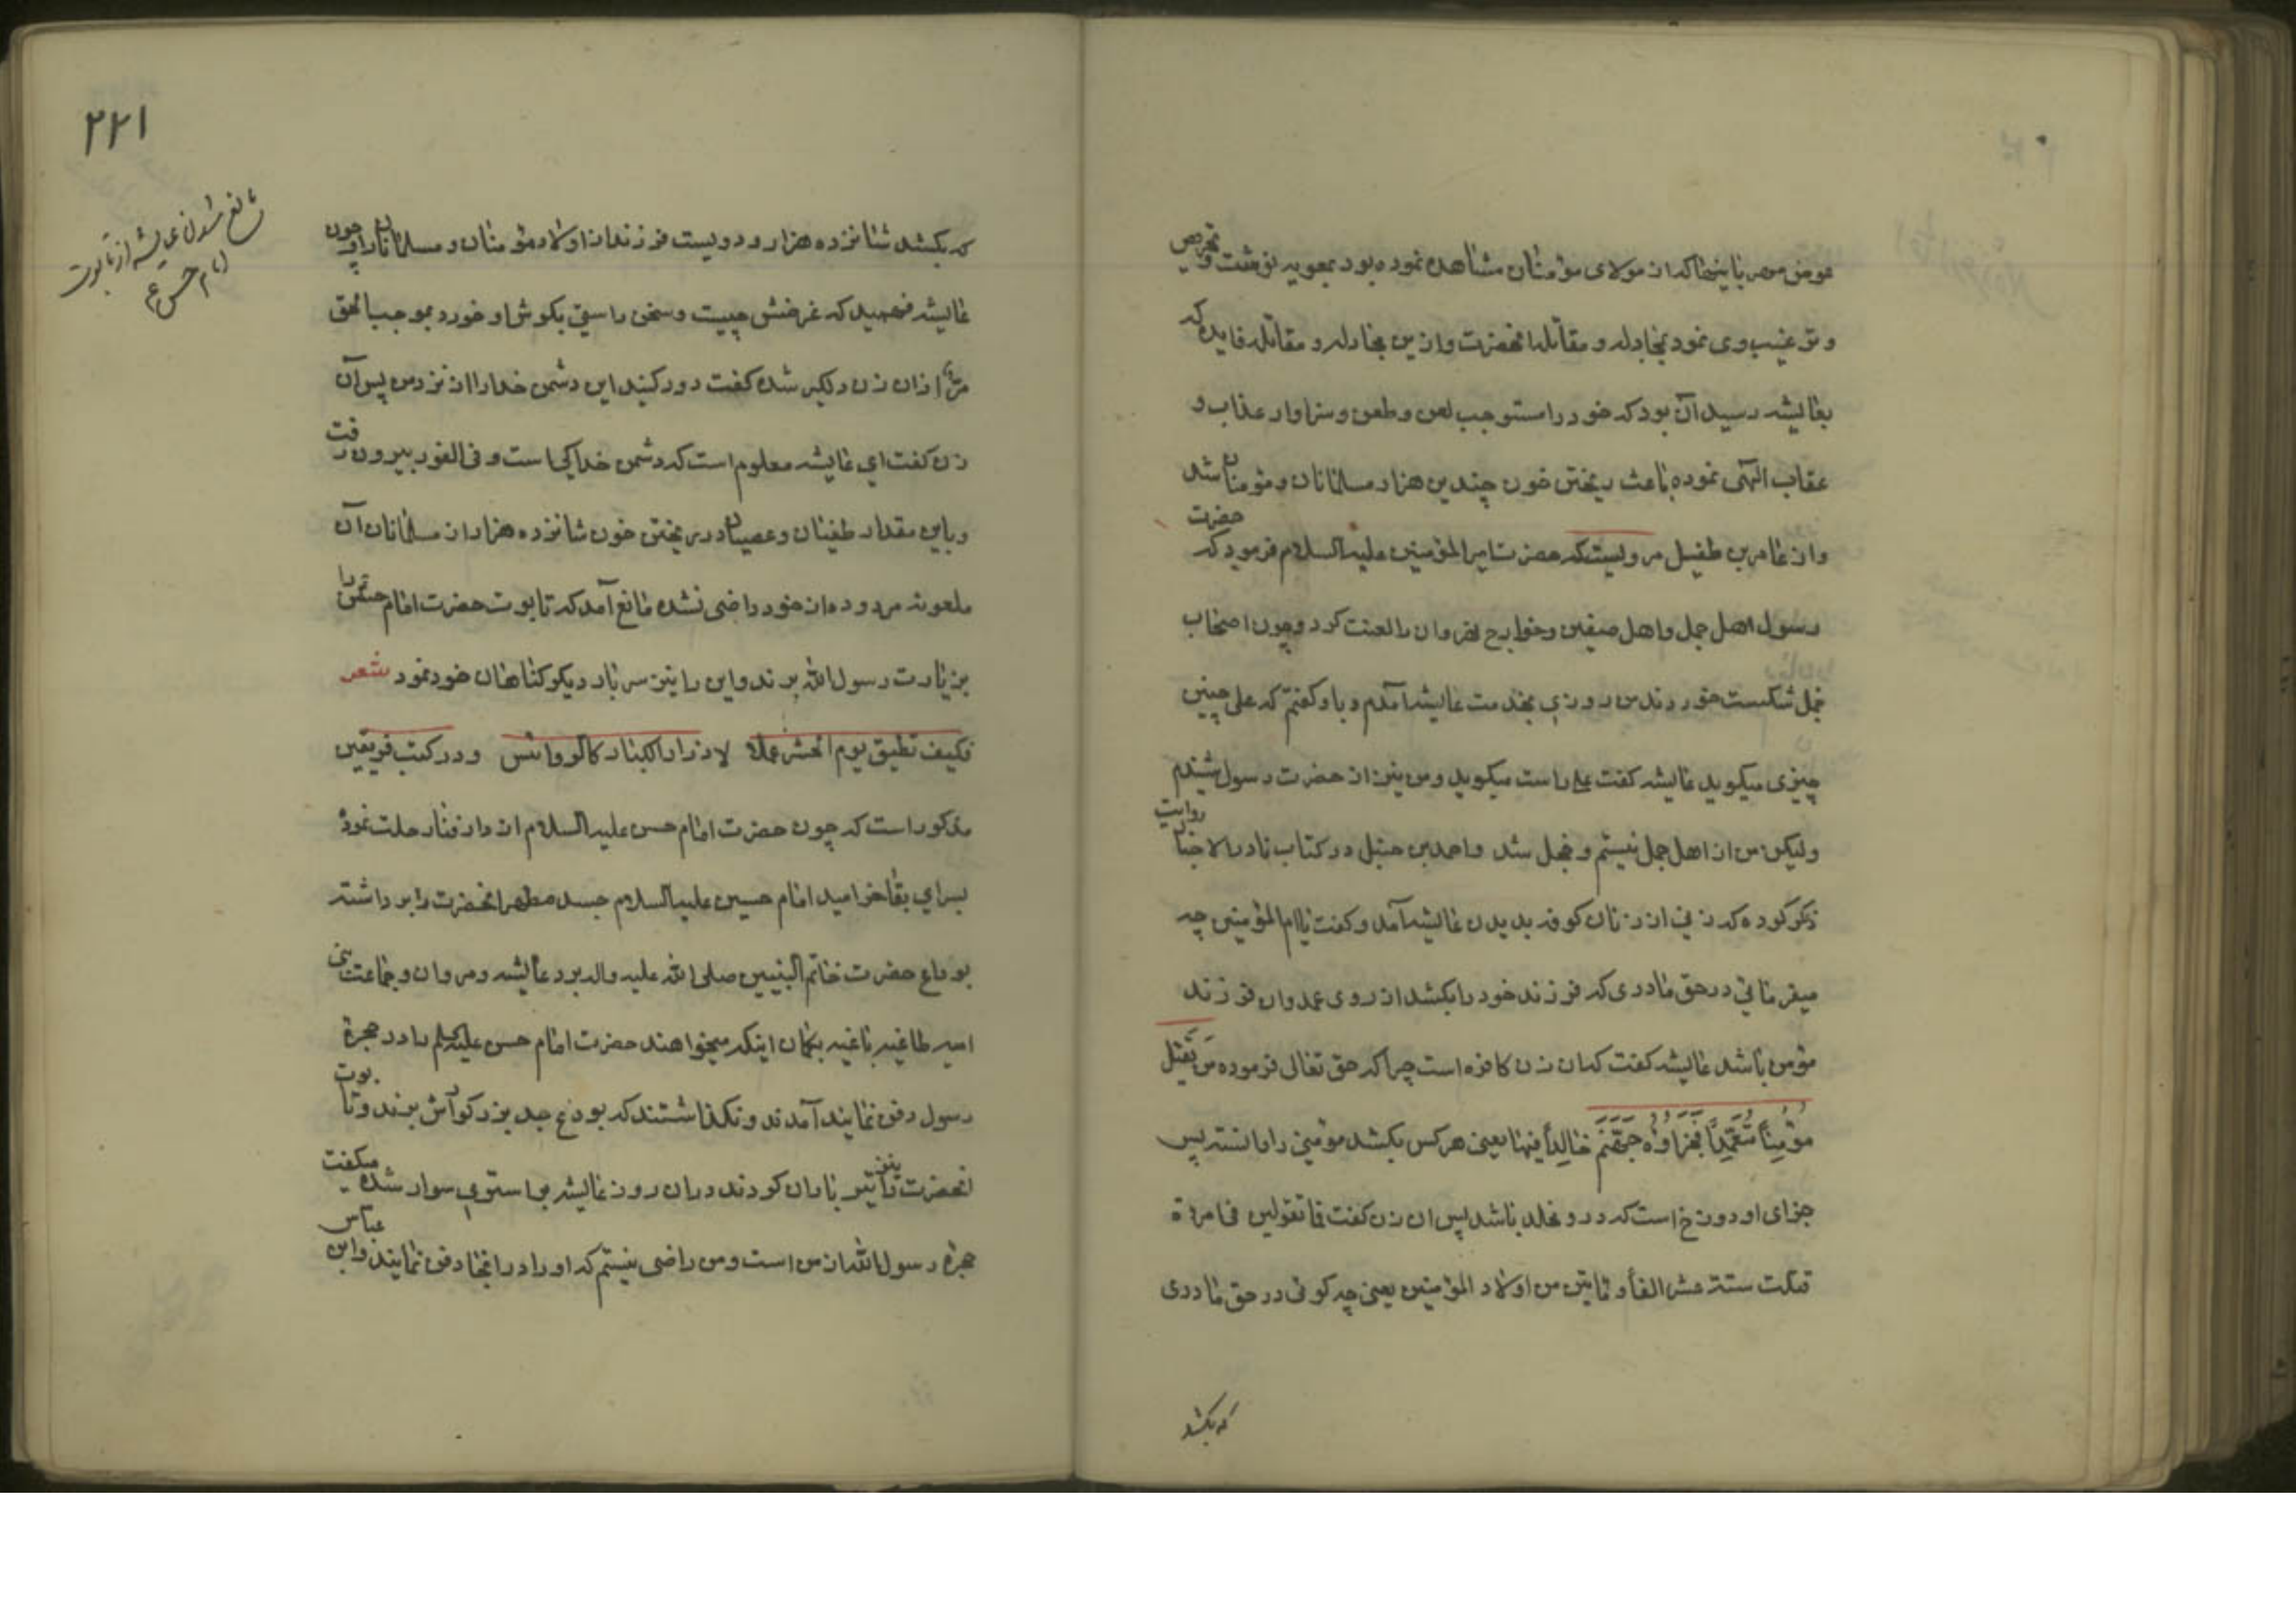 عوض مصر باینها که از مولای مؤمنان مشاهده نموده بود بمعویه نوشت و تحریص
و ترغیب وی نمود بمجادله و مقاتله انحضرت و ازین مجادله و مقاتله فایده که
بعایشه رسید آن بود که خود را مستوجب لعن و طعن و سزاوار عذاب و
عقاب الهی نموده باعث ریختن خون چندین هزار مسلمانان و مؤمنان شد
و از عامر بن طفیل مرویست که حضرت امیرالمؤمنین علیه السلام فرمود که حضرت
رسول اهل جمل و اهل صفین و خوارج نهروان را لعنت کرد و چون اصحاب
جمل شکست خوردند من روزی بخدمت عایشه آمدم و با او گفتم که علی چنین
چیزی میکوید عایشه کفت علی راست میکوید و من نیز از حضرت رسول شنیدم
ولیکن من از اهل جمل نیستم و خجل شد و احمد بن حنبل در کتاب نادر الاخبار روایت
ذکر کرده که زنی از زنان کوفه بدیدن عایشه آمد و کفت یا ام المؤمنین چه
میفرمائی در حق مادری که فرزند خود را بکشد از روی عمد و ان فرزند
مؤمن باشد عایشه کفت که ان زن کافره است چرا که حق تعالی فرموده مَن یَقتُل
مؤمِناً مُتَعَمِّداً فَجَزاؤُه جَهَنَّمَ خالِداً فیها یعنی هر کس بکشد مؤمنی را دانسته پس
جزای او دوزخ است که در و مخلد باشد پس ان زن کفت فما تقولین فی امرءة
قتلت ستة عشر الفاً و مائتین من اولاد المؤمنین یعنی چه کوئی در حق مادری
که بکشد
۲۲۱
مانع شدن عایشه از تابوت
امام حسن ع
که بکشد شانزده هزار و دویست فرزند از اولاد مؤمنان و مسلمانان را و چون
عایشه فهمید که غرضش چیست و سخن راستی بکوش او خورد بموجب الحق
مرّ از ان زن دلکیر شده کفت دور کنید این دشمن خدا را از نزد من پس آن
زن کفت ای عایشه معلوم است که دشمن خدا کجا است و فی الفور بیرون رفت
و باین مقدار طغیان و عصیان در ریختن خون شانزده هزار از مسلمانان آن
ملعونه مردوده از خود راضی نشده مانع آمد که تابوت حضرت امام حسن را
بزیارت رسول الله برند و این را نیز سربار دیکر کناهان خود نمود شعر
فکیف تطیق یوم الحشر عملا لاوزار الکبار کالرواس و در کتب فریقین
مذکور است که چون حضرت امام حسن علیه السلام از دار فنا رحلت نموده
بسرای بقا خرامید امام حسین علیه السلام جسد مطهر انحضرت را برداشته
بوداع حضرت خاتم النبیین صلی الله علیه و اله برد عایشه و مروان و جماعت بنی
امیه طاغیه باغیه بکمان اینکه میخواهند حضرت امام حسن علیه السلم را در حجرهٔ
رسول دفن نمایند آمدند و نکذاشتند که بوداع جد بزرکوارش برند و تابوت
انحضرت را تیر باران کردند در ان روز عایشه بر استری سوار شده میکفت
حجرهٔ رسول الله از من است و من راضی نیستم که او را در انجا دفن نمایند و ابن عباس